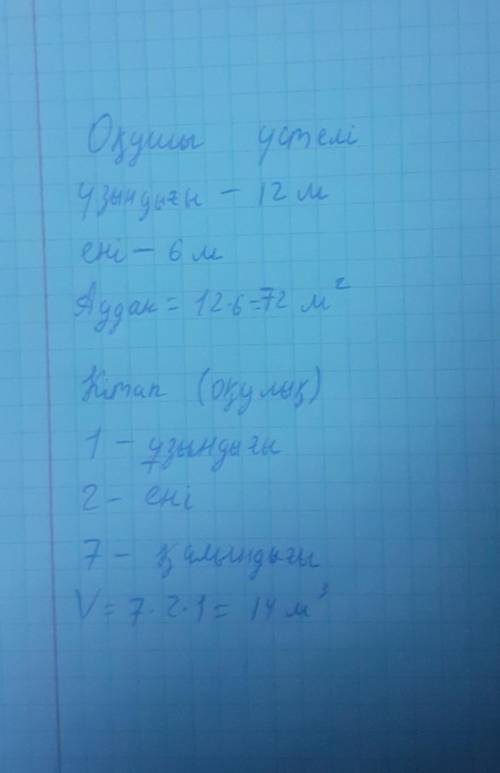 Оқушы үстелі
Ұзындығы - 12 м
ені - 6 м
Аудан = 12·6=72 м²
Кітап (оқулық)
1 - ұзындығы
2 - ені
7 - қалындығы
V = 7·2·1 = 14 м³